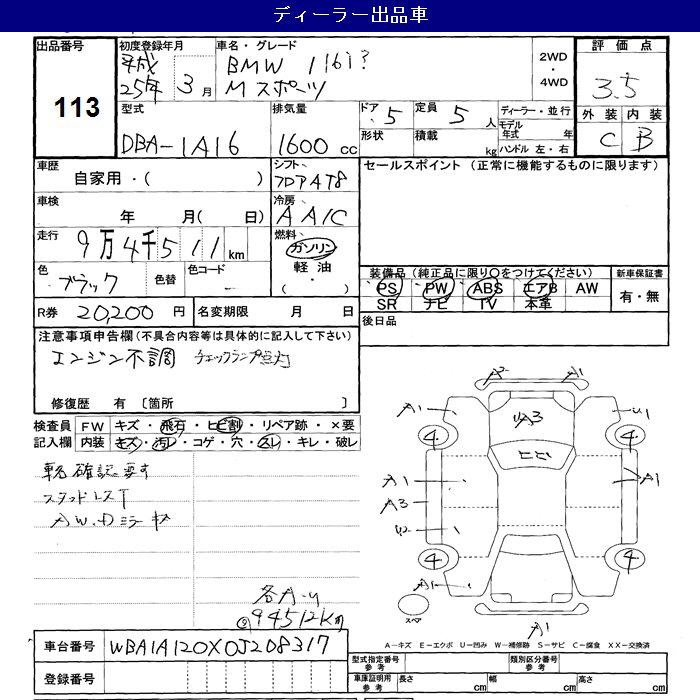 ディーラー出品車
出品番号
113
初度登録年月
平成
25年 3月
車名・グレード
BMW 116i?
Mスポーツ
2WD
・
4WD
評価点
3.5
外装 内装
C B
型式
DBA-1A16
排気量
1600 cc
ドア 5
定員 5 人
形状
積載 kg
ディーラー・並行
モデル年式 年
ハンドル 左・右
車歴
自家用・( )
シフト
フロアAT8
セールスポイント (正常に機能するものに限ります)
車検
年 月( 日)
冷房
AAIC
走行
9万4千511km
燃料
ガソリン
軽油
・
色
ブラック
色替
色コード
装備品(純正品に限り○をつけてください)
PS PW ABS エアB AW
SR ナビ TV 本革
新車保証書
有・無
R券 20,200円
名変期限 月 日
後日品
注意事項申告欄(不具合内容等は具体的に記入して下さい)
エンジン不調 チェックランプ点灯
修復歴 有 〔箇所 〕
検査員記入欄
FW キズ・飛石・ヒビ割・リペア跡・×要
内装 キズ・汚レ・コゲ・穴・スレ・キレ・破レ
確認要す
スタッドレスT
AW、Dミラーキズ
各A-U
94512km
A2 A1
A1 A3 U1
4 4
ヒビ
A1 A1
A3
U2
4 4
A1
スペア
A1
A-キズ E-エクボ U-凹み W-補修跡 S-サビ C-腐食 XX-交換済
車台番号 WBA1A120X0J208317
登録番号
型式指定番号 参考
類別区分番号 参考
車庫証明用 参考
長さ cm
幅 cm
高さ cm